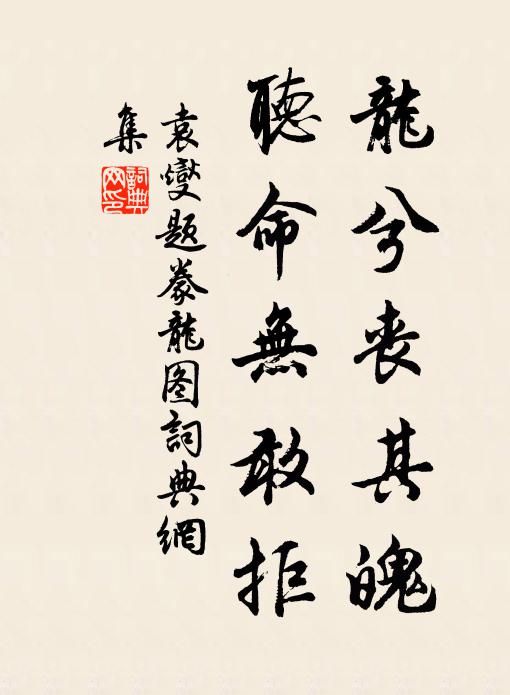 龍兮喪其魄
聽命無敢拒
袁燮題豢龍图詞典網
集
詞典
网印